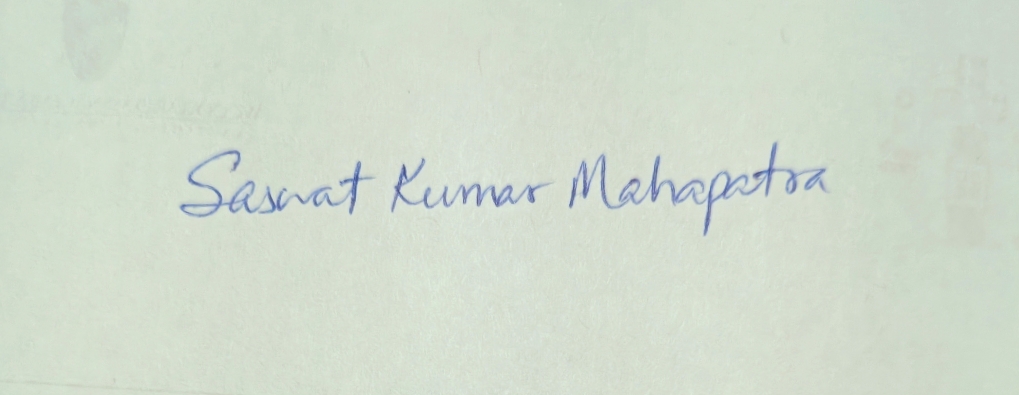 Saswat Kumar Mahapatra